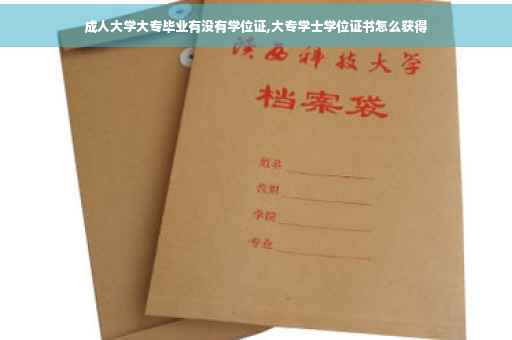 成人大学大专毕业有没有学位证,大专学士学位证书怎么获得
陕西科技大学
档案袋
姓名
学院
专业